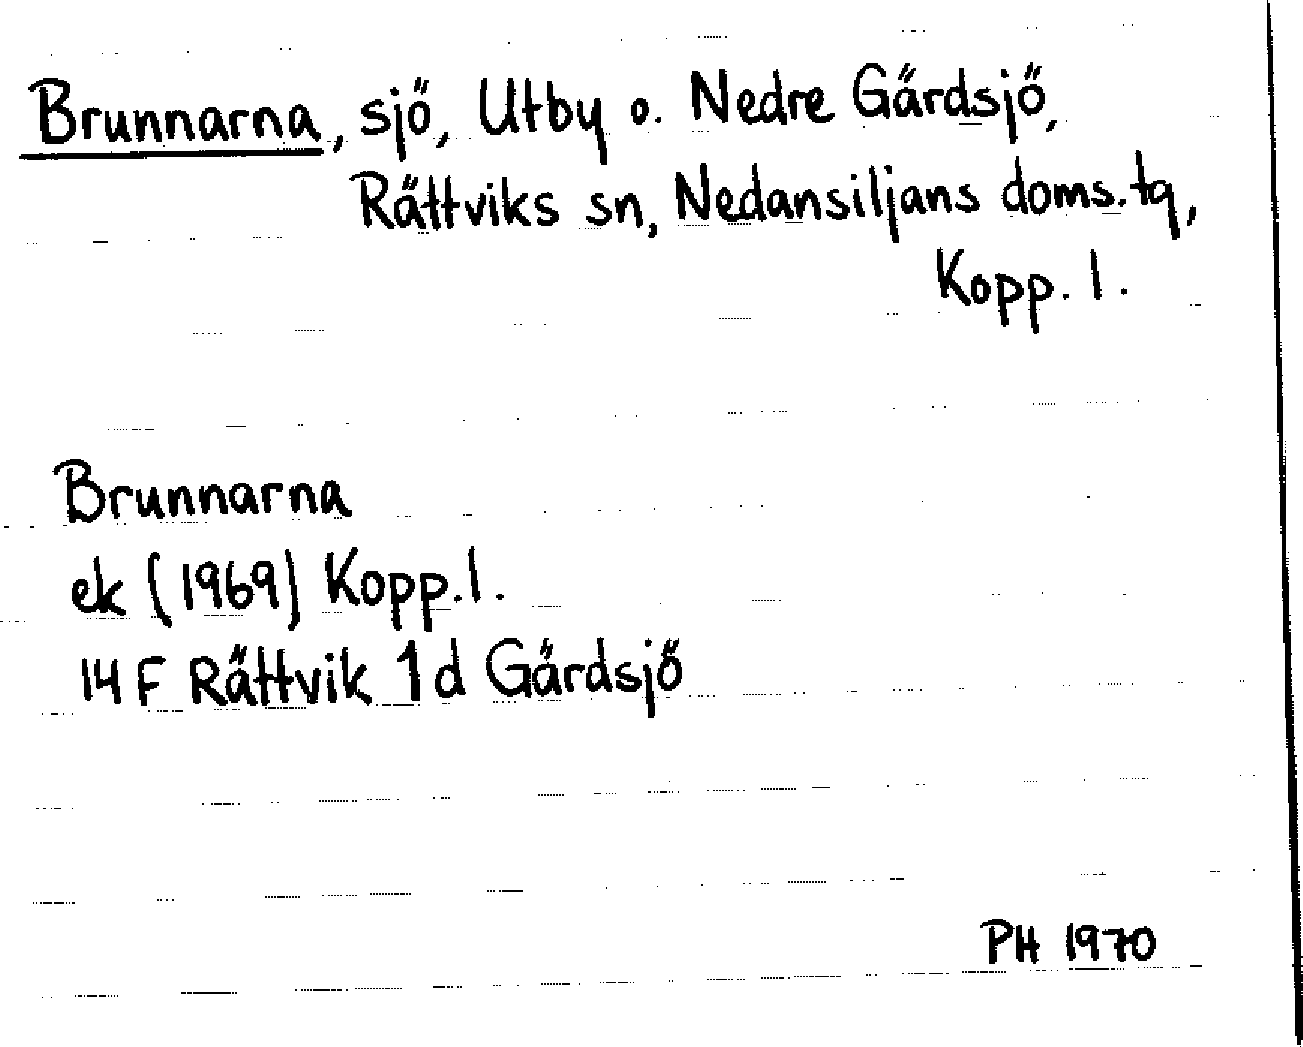 Brunnarna, sjö, Utby o. Nedre Gärdsjö,
Rättviks sn, Nedansiljans doms.tg,
Kopp. l.
Brunnarna
ek (1969) Kopp.l.
14 F Rättvik 1d Gärdsjö
PH 1970